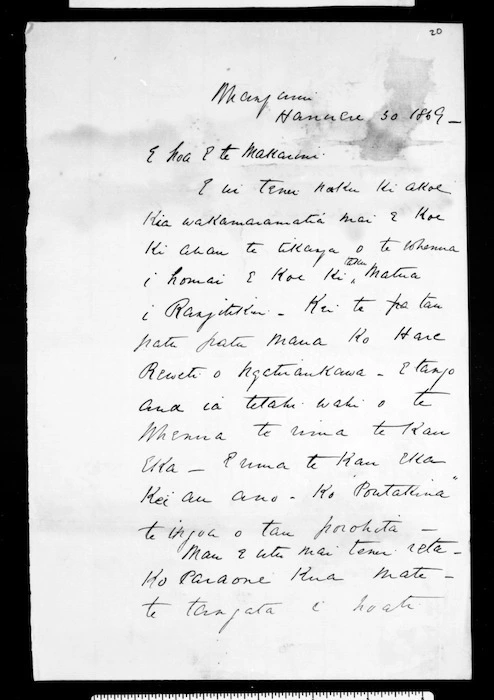 20
Whanganui
Hanuere 30 1869 -
E hoa E te Makarini
E ui tenei naku ki akoe
Kia wakamaramatia mai E Koe
Ki ahau te tikanga o te whenua
i homai E Koe Ki taku Matua
i Rangitikei - Kei te
patu patu mana Ko Hare
Reweti o Ngatiraukawa - E tango
ana ia tetahi wahi o te
Whenua te rima te Kau
Eka - E rima te Kau Eka
Kei au ano - Ko "Poutakina"
te ingoa o tau porohita -
Mau E utu mai tenei reta -
Ko Paraone Kua mate -
te tangata i hoatu